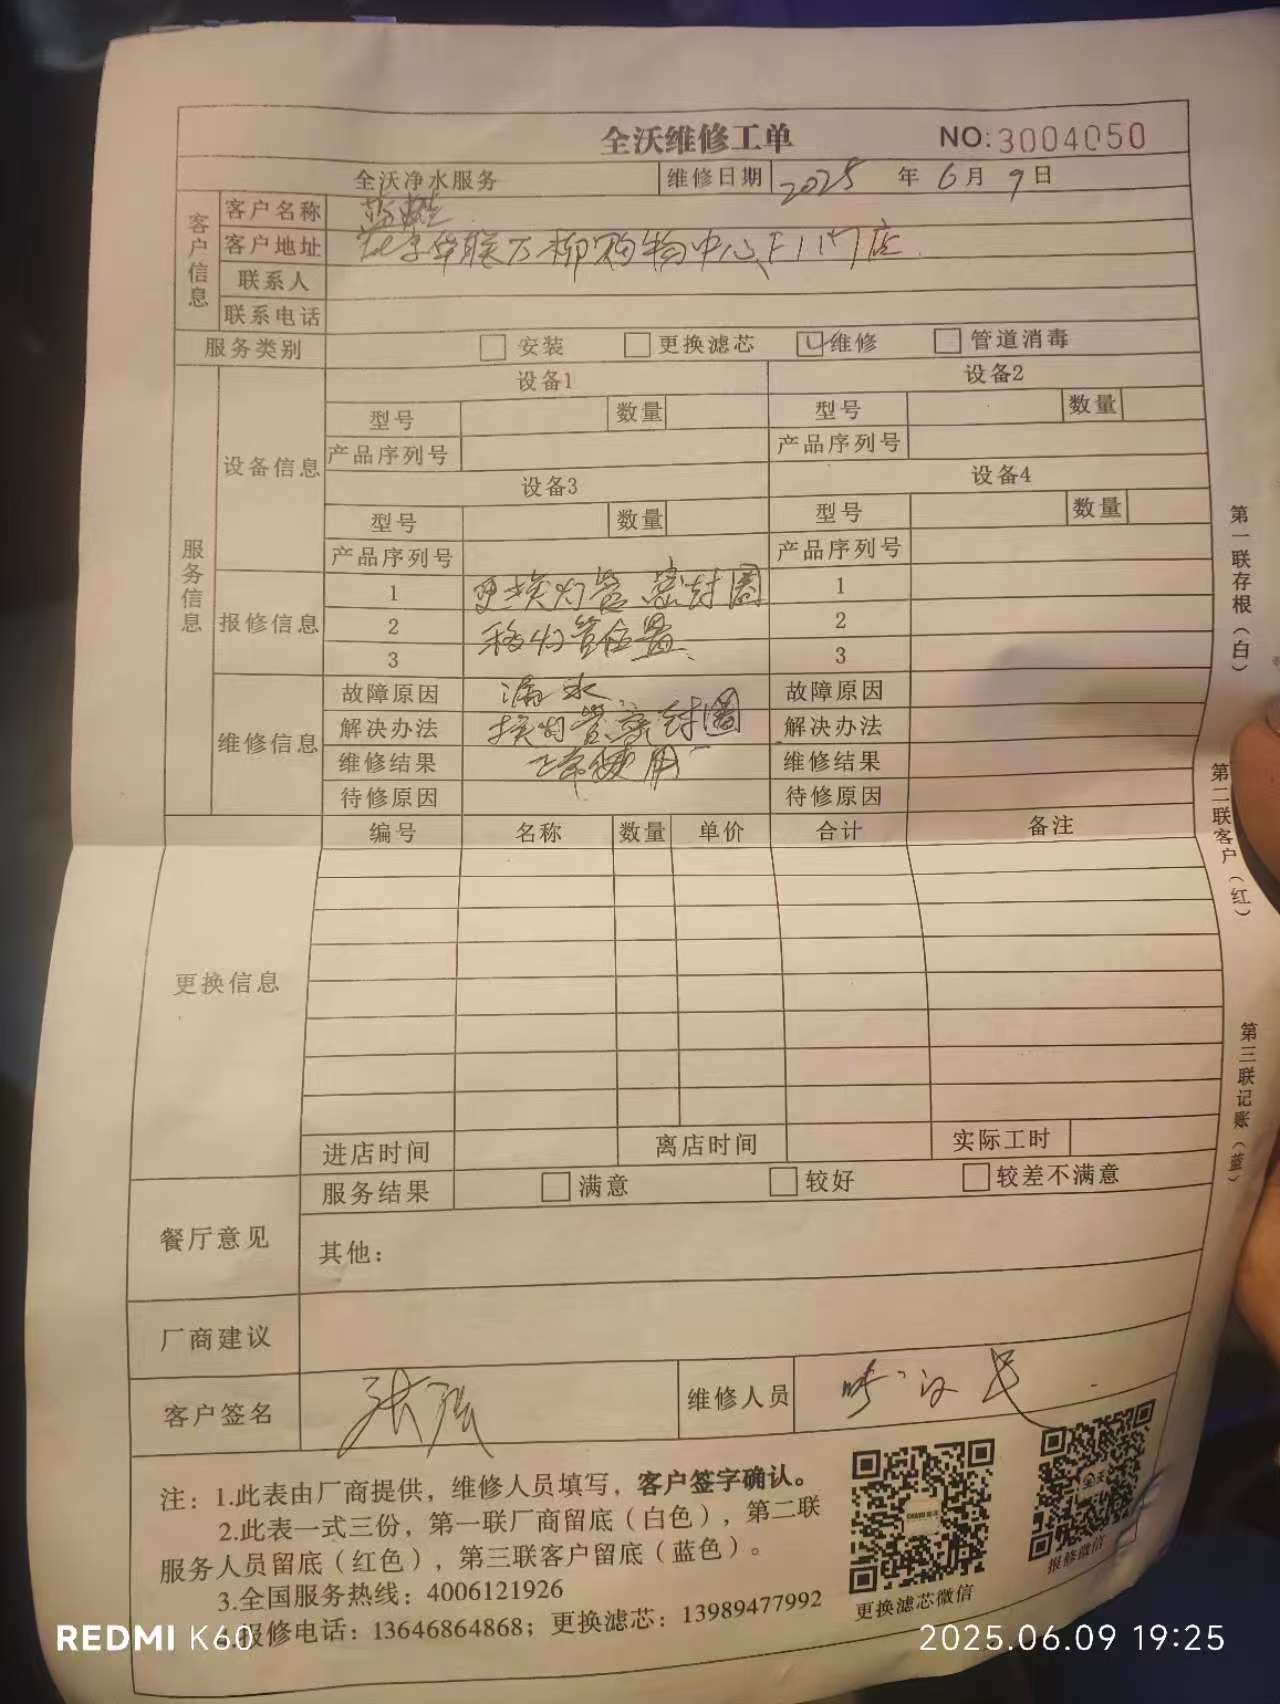 全沃维修工单 NO:3004050
全沃净水服务 维修日期 2025年6月9日
客户信息
客户名称
客户地址 北京华联万柳购物中心F1门店
联系人
联系电话
服务类别 安装 更换滤芯 维修 管道消毒
服务信息
设备信息
设备1 设备2
型号 数量 型号 数量
产品序列号 产品序列号
设备3 设备4
型号 数量 型号 数量
产品序列号 产品序列号
报修信息
1 更换灯管密封圈 1
2 移灯管位置 2
3 3
维修信息
故障原因 漏水 故障原因
解决办法 换灯管密封圈 解决办法
维修结果 正常使用 维修结果
待修原因 待修原因
更换信息
编号 名称 数量 单价 合计 备注
进店时间 离店时间 实际工时
餐厅意见
服务结果 满意 较好 较差不满意
其他：
厂商建议
客户签名 维修人员
注：1.此表由厂商提供，维修人员填写，客户签字确认。
2.此表一式三份，第一联厂商留底（白色），第二联
服务人员留底（红色），第三联客户留底（蓝色）。
3.全国服务热线：4006121926
4.报修电话：13646864868；更换滤芯：13989477992
更换滤芯微信
报修微信
第一联存根（白）
第二联客户（红）
第三联记账（蓝）
REDMI K60
2025.06.09 19:25